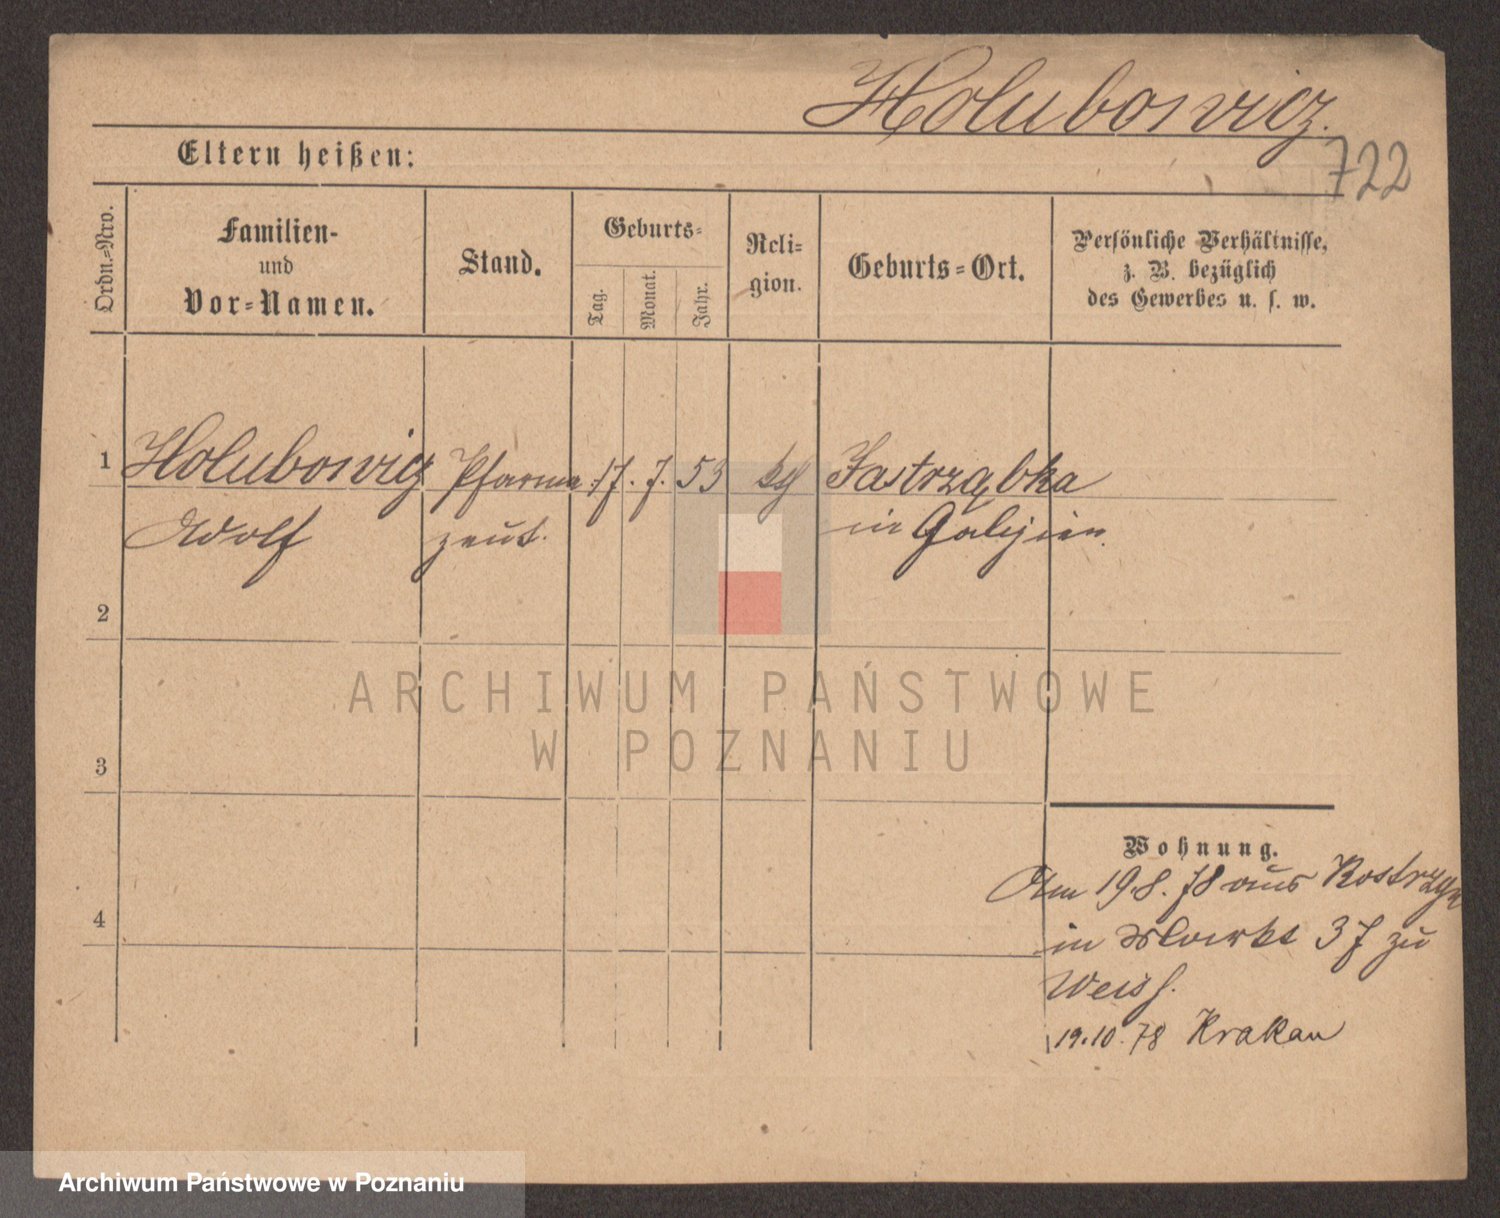 Holubowicz.
722
Eltern heißen:
Ordn.=Nro.
Familien-
und
Vor=Namen.
Stand.
Geburts=
Tag.
Monat.
Jahr.
Reli=
gion.
Geburts=Ort.
Persönliche Verhältnisse,
z. B. bezüglich
des Gewerbes u. s. w.
1 Holubowicz Pharma 17. 7. 53 Jastrząbka
Adolf zeut. in Galizien.
2
3
4
ARCHIWUM PAŃSTWOWE
W POZNANIU
Wohnung.
Am 19.8.78 aus Kostrzyn
in Markt 37 zu
Weiss.
19.10.78 Krakau
Archiwum Państwowe w Poznaniu